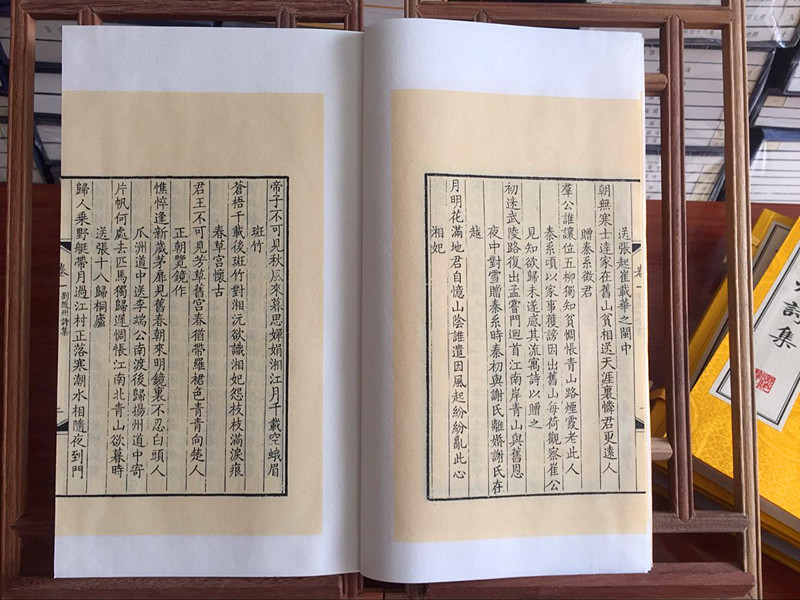 送張起崔載華之閩中
朝無寒士達家在舊山貧相送天涯裏憐君更遠人
贈秦系徵君
羣公誰讓位五柳獨知貧惆悵青山路煙霞老此人
秦系頃以家事獲謗因出舊山每荷觀察崔公
見知欲歸未遂感其流寓詩以贈之
初迷武陵路復出孟嘗門迴首江南岸青山與舊恩
夜中對雪贈秦系時秦初與謝氏離婚謝氏在
越
月明花滿地君自憶山陰誰遣因風起紛紛亂此心
湘妃
帝子不可見秋風來暮思嬋娟湘江月千載空蛾眉
斑竹
蒼梧千載後斑竹對湘沅欲識湘妃怨枝枝滿淚痕
春草宮懷古
君王不可見芳草舊宮春猶帶羅裙色青青向楚人
正朝覽鏡作
憔悴逢新歲茅扉見舊春朝來明鏡裏不忍白頭人
瓜洲道中送李端公南渡後歸揚州道中寄
片帆何處去匹馬獨歸遲惆悵江南北青山欲暮時
送張十八歸桐廬
歸人乘野艇帶月過江村正落寒潮水相隨夜到門
卷一
劉隨州詩集
二
詩集